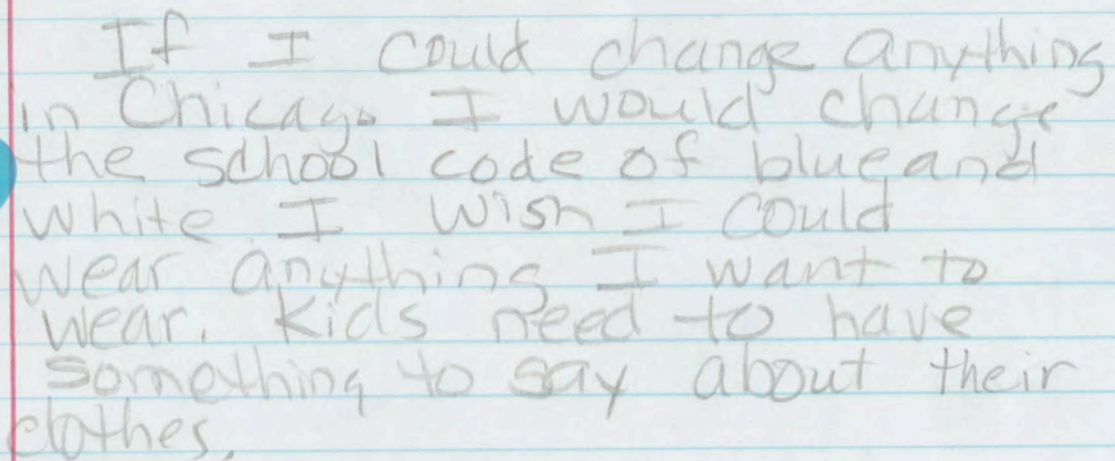 If I could change anything
in Chicago I would change
the school code of blue and
white I wish I could
wear anything I want to
wear. Kids need to have
something to say about their
clothes.